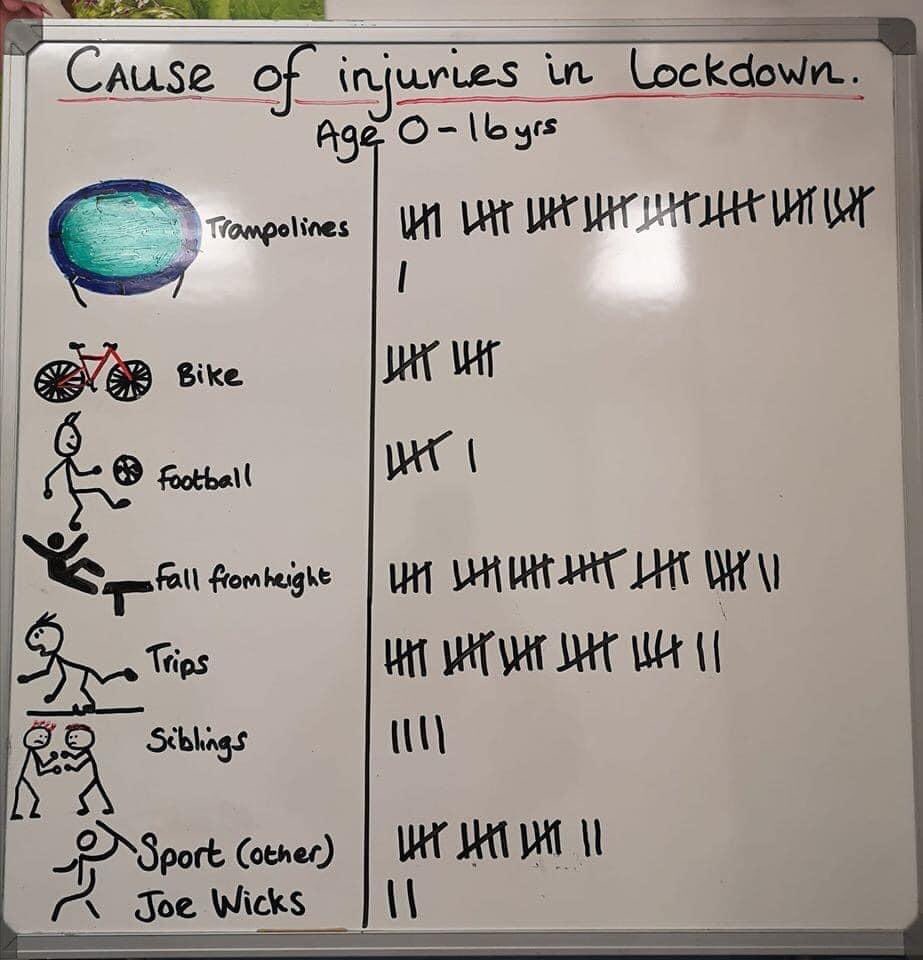 Cause of injuries in Lockdown.
Age 0-16yrs
Trampolines
Bike
Football
Fall from height
Trips
Siblings
Sport (other)
Joe Wicks